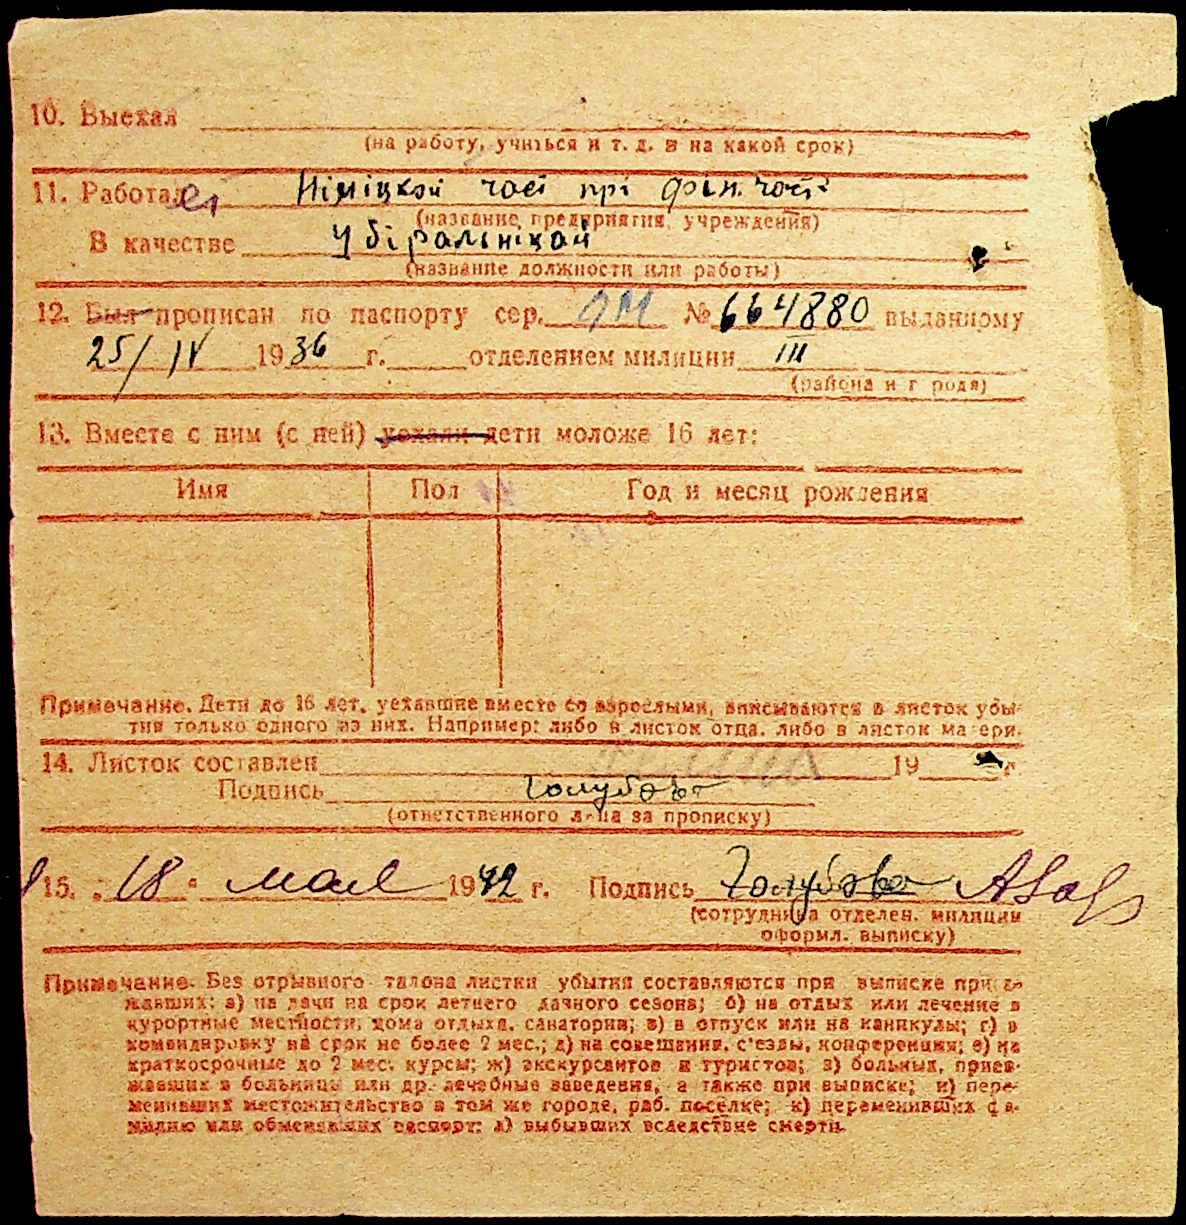 10. Выехал
(на работу, учиться и т. д. и на какой срок)
11. Работает Німіцкой часі прі фін. часі
(название предприятия, учреждения)
В качестве убіральніцай
(название должности или работы)
12. Был прописан по паспорту сер. ЛМ № 664880 выданному
25/IV 1936 г. отделением милиции III
(района и г рода)
13. Вместе с ним (с ней) уехали дети моложе 16 лет:
Имя Пол Год и месяц рождения
Примечание. Дети до 16 лет, уехавшие вместе со взрослыми, вписываются в листок убы-
тия только одного из них. Например: либо в листок отца, либо в листок матери.
14. Листок составлен 19 г.
Подпись Голубева
(ответственного лица за прописку)
15. „18“ мая 1942 г. Подпись Голубева
(сотрудника отделен. милиции
оформл. выписку)
Примечание. Без отрывного талона листки убытия составляются при выписке приез-
жавших: а) на дачи на срок летнего дачного сезона; б) на отдых или лечение в
курортные местности, дома отдыха, санатории; в) в отпуск или на каникулы; г) в
командировку на срок не более 2 мес.; д) на совещания, с'езды, конференции; е) на
краткосрочные до 2 мес. курсы; ж) экскурсантов и туристов; з) больных, приез-
жавших в больницы или др. лечебные заведения, а также при выписке; и) пере-
менивших местожительство в том же городе, раб. поселке; к) переменивших фа-
милию или обменявших паспорт; л) выбывших вследствие смерти.